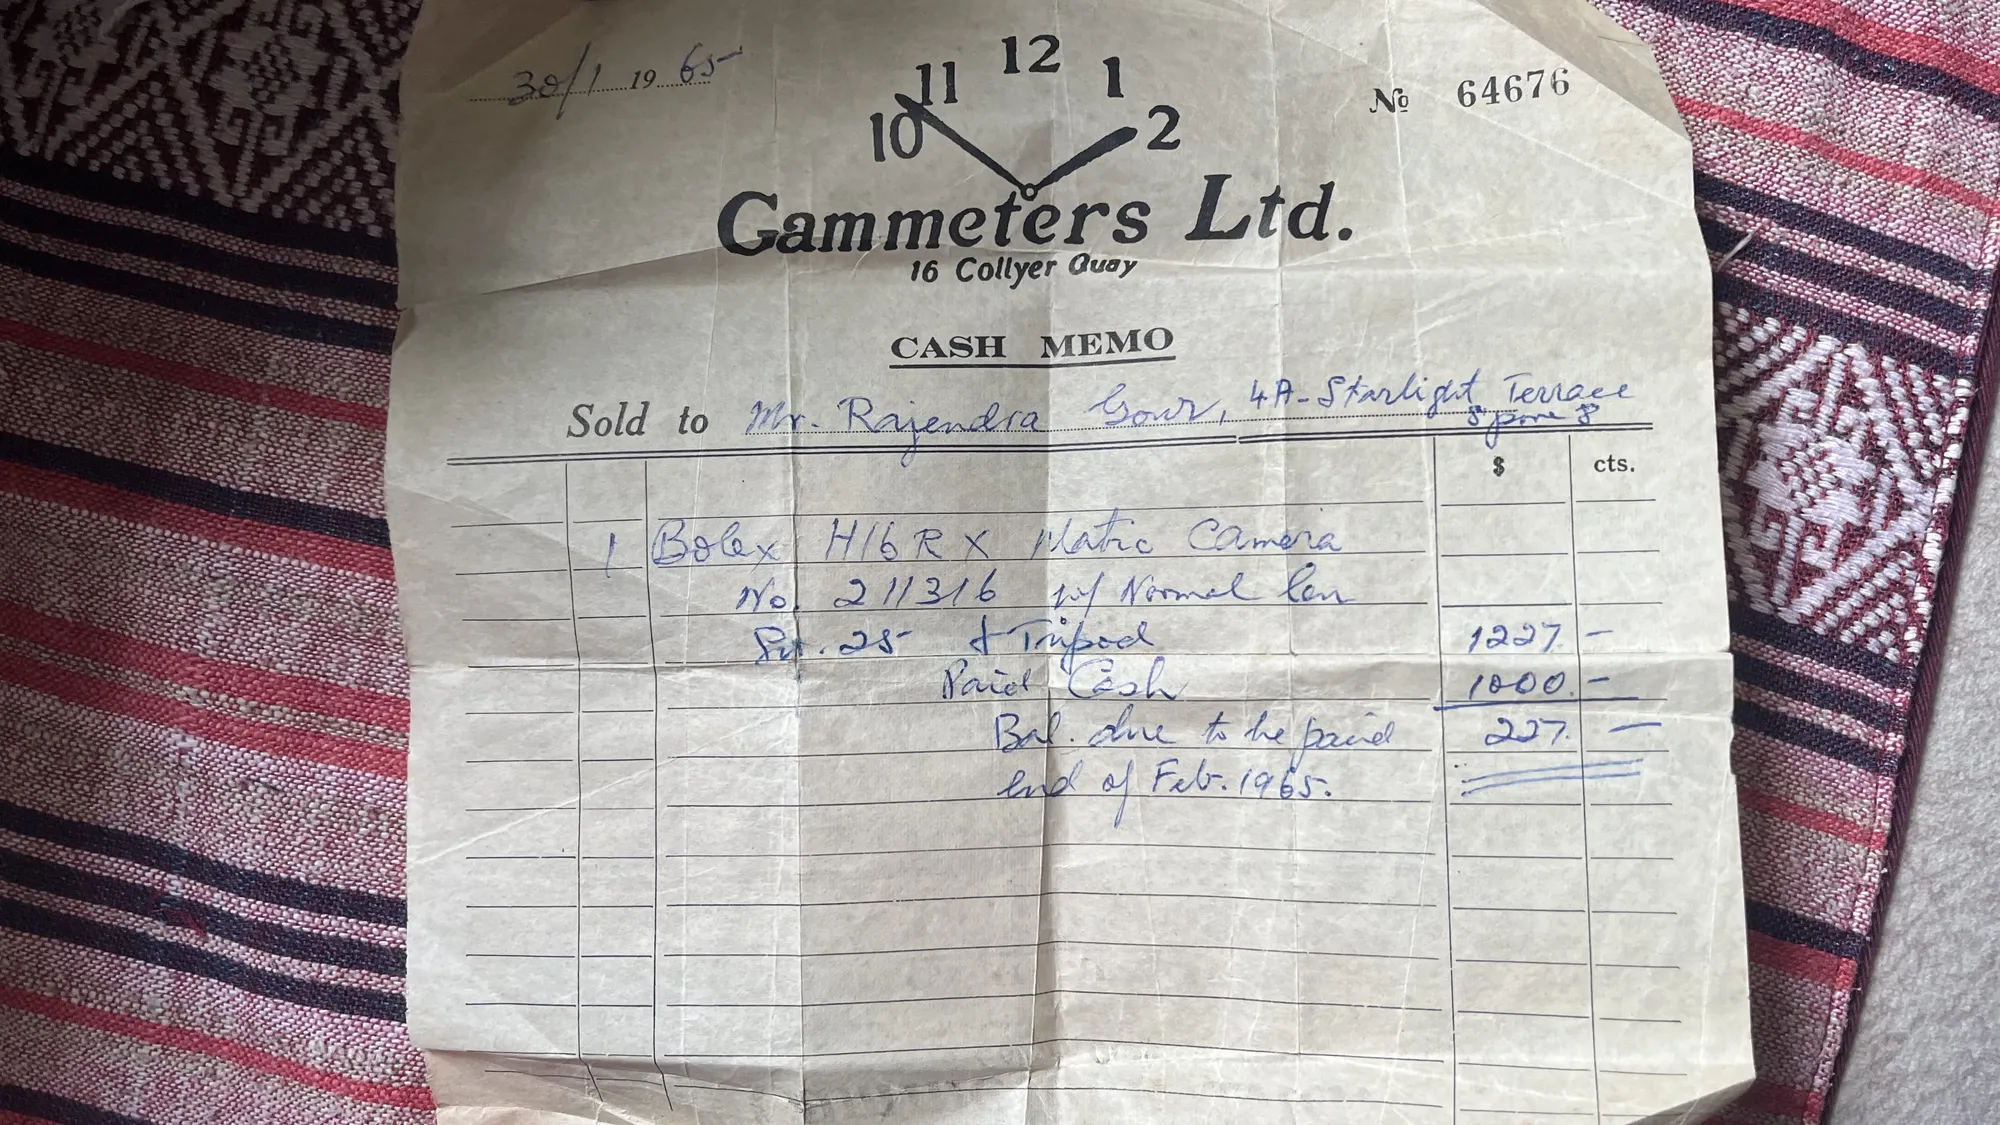 30/1 19 65
Nº 64676
12
11 1
10 2
Gammeters Ltd.
16 Collyer Quay
CASH MEMO
Sold to Mr. Rajendra Gour, 4A-Starlight Terrace
S'pore 8
$ cts.
1 Bolex H16 RX Matic Camera
No. 211316 w/ Normal len
25 & Tripod 1227. -
Paid Cash 1000. -
Bal. due to be paid 227. -
end of Feb. 1965.